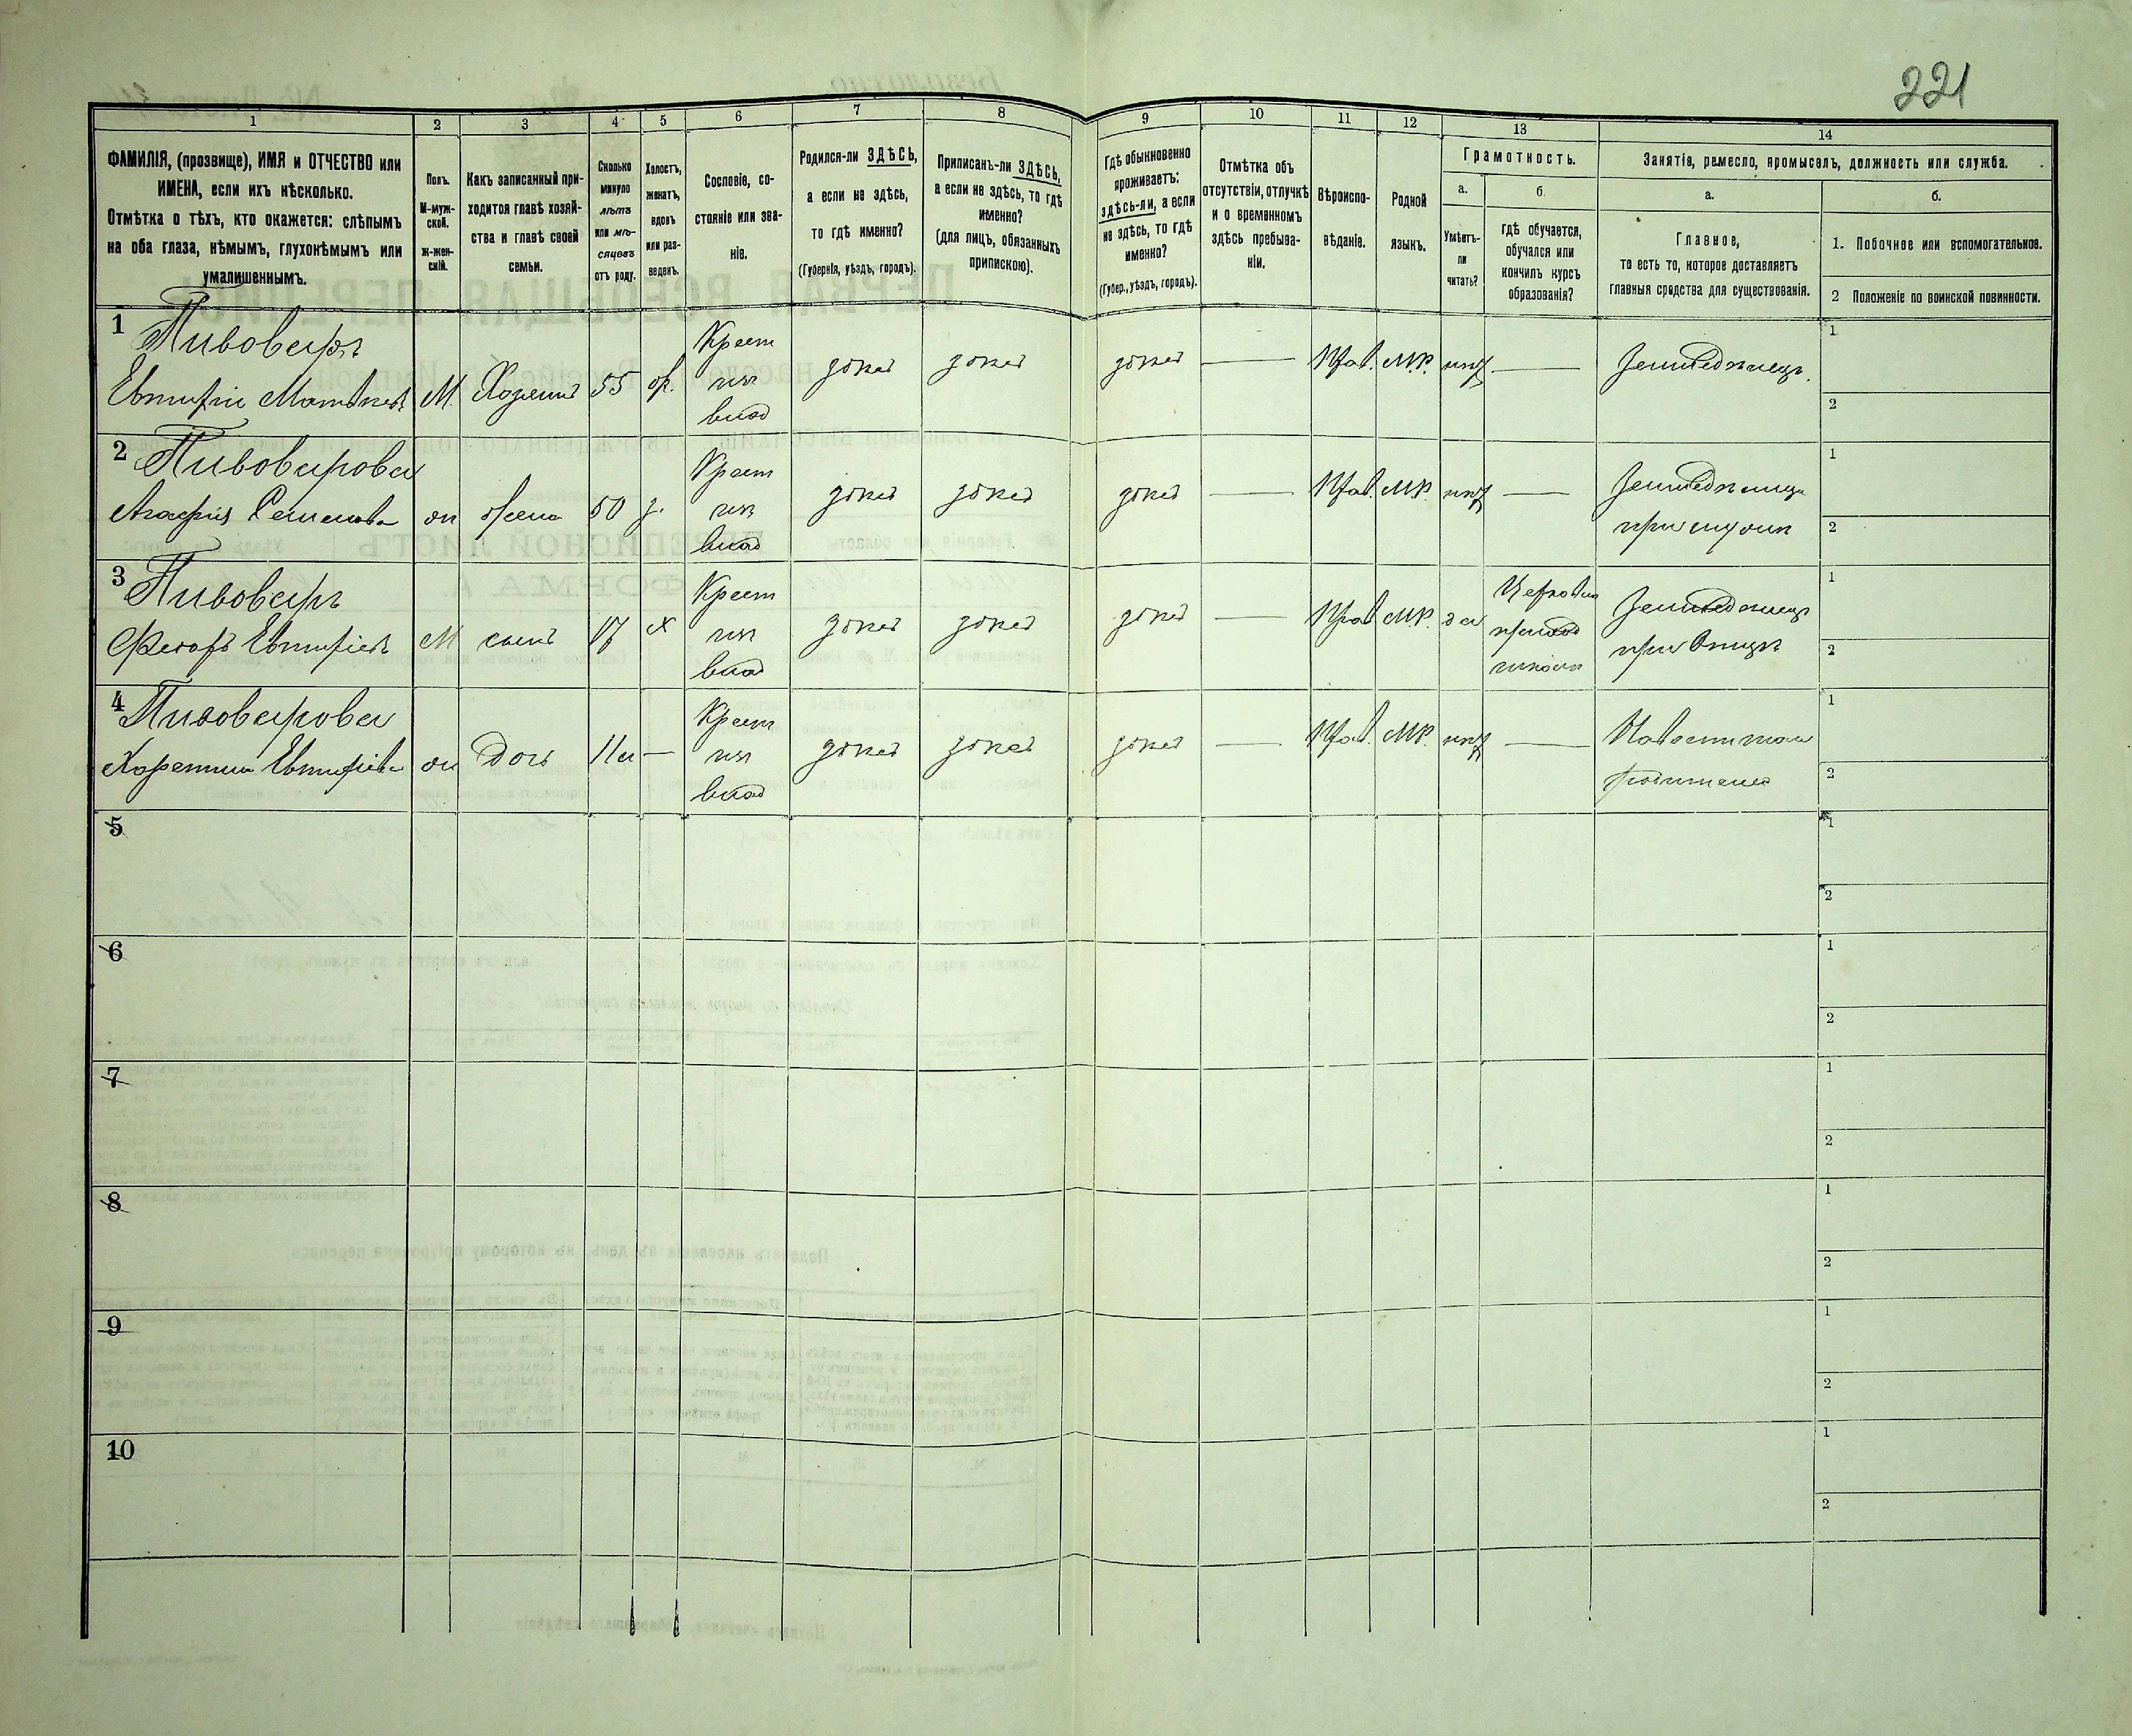 221
1
2
3
4
5
6
7
8
9
10
11
12
13
14
ФАМИЛІЯ, (прозвище), ИМЯ и ОТЧЕСТВО или
ИМЕНА, если ихъ нѣсколько.
Отмѣтка о тѣхъ, кто окажется: слѣпымъ
на оба глаза, нѣмымъ, глухонѣмымъ или
умалишеннымъ.
Полъ.
М-муж-
ской.
ж-жен-
скій.
Какъ записанный при-
ходится главѣ хозяй-
ства и главѣ своей
семьи.
Сколько
минуло
лѣтъ
или мѣ-
сяцевъ
отъ роду.
Холостъ,
женатъ,
вдовъ
или раз-
веденъ.
Сословіе, со-
стояніе или зва-
ніе.
Родился-ли ЗДѢСЬ,
а если не здѣсь,
то гдѣ именно?
(Губернія, уѣздъ, городъ).
Приписанъ-ли ЗДѢСЬ,
а если не здѣсь, то гдѣ
именно?
(для лицъ, обязанныхъ
припискою).
Гдѣ обыкновенно
проживаетъ:
здѣсь-ли, а если
не здѣсь, то гдѣ
именно?
(Губер., уѣздъ, городъ).
Отмѣтка объ
отсутствіи, отлучкѣ
и о временномъ
здѣсь пребыва-
ніи.
Вѣроиспо-
вѣданіе.
Родной
языкъ.
Грамотность.
а.
Умѣетъ-
ли
читать?
б.
гдѣ обучается,
обучался или
кончилъ курсъ
образованія?
Занятіе, ремесло, промыселъ, должность или служба.
а.
Главное,
то есть то, которое доставляетъ
главныя средства для существованія.
б.
1. Побочное или вспомогательное.
2 Положеніе по воинской повинности.
1 Пивоваръ
Евтифій Матвѣевъ М. Хозяинъ 55
Крест
изъ
влад
здѣсь здѣсь здѣсь — Прав. М.Р. —
Земледѣлецъ.
1
2
2 Пивоварова
Агафія Семенова жена 50
Крест
изъ
влад
здѣсь здѣсь здѣсь — Прав. М.Р. —
при мужѣ
1
2
3 Пивоваръ
Федоръ Евтифіевъ М сынъ 17 х
Крест
изъ
влад
здѣсь здѣсь здѣсь — Прав М.Р. да
Церковно
приход
школѣ
Земледѣлецъ
при отцѣ
1
2
4 Пивоварова
Харитина Евтифіева дочь 11 —
Крест
изъ
влад
здѣсь здѣсь здѣсь — Прав. М.Р. —
1
2
5
1
2
6
1
2
7
1
2
8
1
2
9
1
2
10
1
2